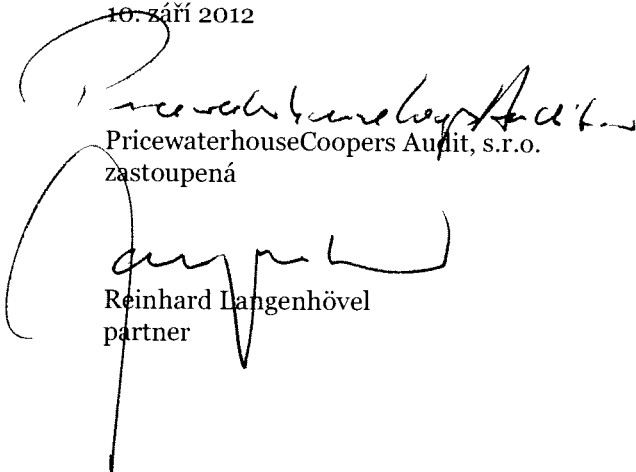 10. září 2012
PricewaterhouseCoopers Audit
PricewaterhouseCoopers Audit, s.r.o.
zastoupená
Reinhard Langenhövel
partner